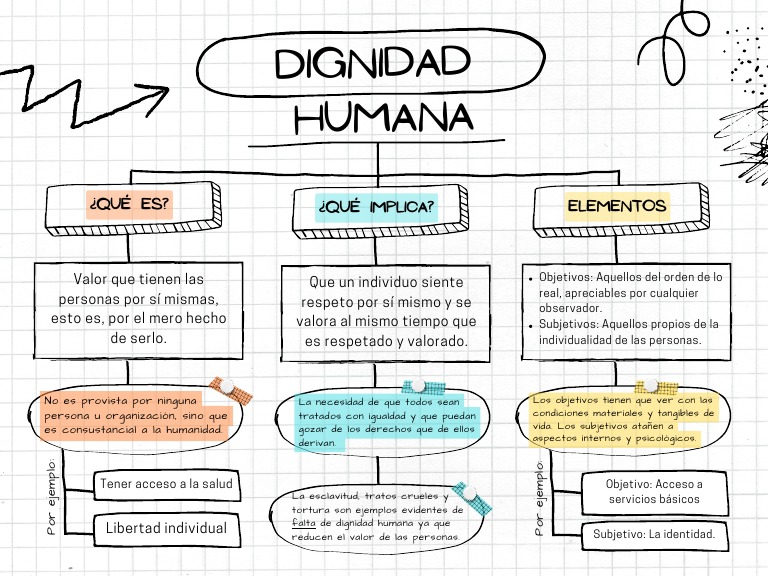 DIGNIDAD
HUMANA
¿QUÉ ES?
Valor que tienen las
personas por sí mismas,
esto es, por el mero hecho
de serlo.
No es provista por ninguna
persona u organización, sino que
es consustancial a la humanidad.
Por ejemplo:
Tener acceso a la salud
Libertad individual
¿QUÉ IMPLICA?
Que un individuo siente
respeto por sí mismo y se
valora al mismo tiempo que
es respetado y valorado.
La necesidad de que todos sean
tratados con igualdad y que puedan
gozar de los derechos que de ellos
derivan.
La esclavitud, tratos crueles y
tortura son ejemplos evidentes de
falta de dignidad humana ya que
reducen el valor de las personas.
ELEMENTOS
• Objetivos: Aquellos del orden de lo
real, apreciables por cualquier
observador.
• Subjetivos: Aquellos propios de la
individualidad de las personas.
Los objetivos tienen que ver con las
condiciones materiales y tangibles de
vida. Los subjetivos atañen a
aspectos internos y psicológicos.
Por ejemplo:
Objetivo: Acceso a
servicios básicos
Subjetivo: La identidad.